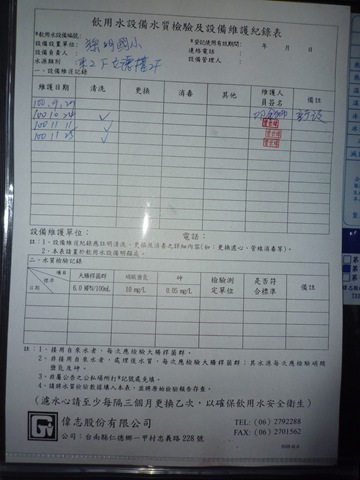 飲用水設備水質檢驗及設備維護紀錄表
*飲用水設備編號：
*登記使用有效期間： 年 月 日
設備設置單位： 國小
連絡電話：
設備負責人：
設備管理人：
水源類別
一、設備維護記錄
維護日期 清洗 更換 消毒 其他 維護人員簽名 備註
100.9.29
100 10 24 ✓
100 11 11 ✓
100 11 25 ✓
設備維護單位： 電話：
註：1、設備維護紀錄應註明清洗、更換與消毒之詳細內容(如：更換濾心、管線消毒等)。
2、本表請置於飲用水設備明顯處。
二、水質檢驗記錄
項目 標準 日期 大腸桿菌群 硝酸鹽氮 砷 檢驗測定單位 是否符合標準 備註
6.0 個N/100mL 10 mg/L 0.05 mg/L
註：1、採用自來水者，每次應檢驗大腸桿菌群。
2、非採用自來水者，處理後水質，每次應檢驗大腸桿菌群；其水源每次應檢驗硝酸鹽氮及砷。
3、非屬公告之公私場所打*記號處免填。
4、請將水質檢驗數據填入本表，並將原始檢驗報告存查。
(濾水心請至少每隔三個月更換乙次，以確保飲用水安全衛生)
偉志股份有限公司
公司：台南縣仁德鄉一甲村忠義路228號
TEL: (06) 2792288
FAX: (06) 2701562